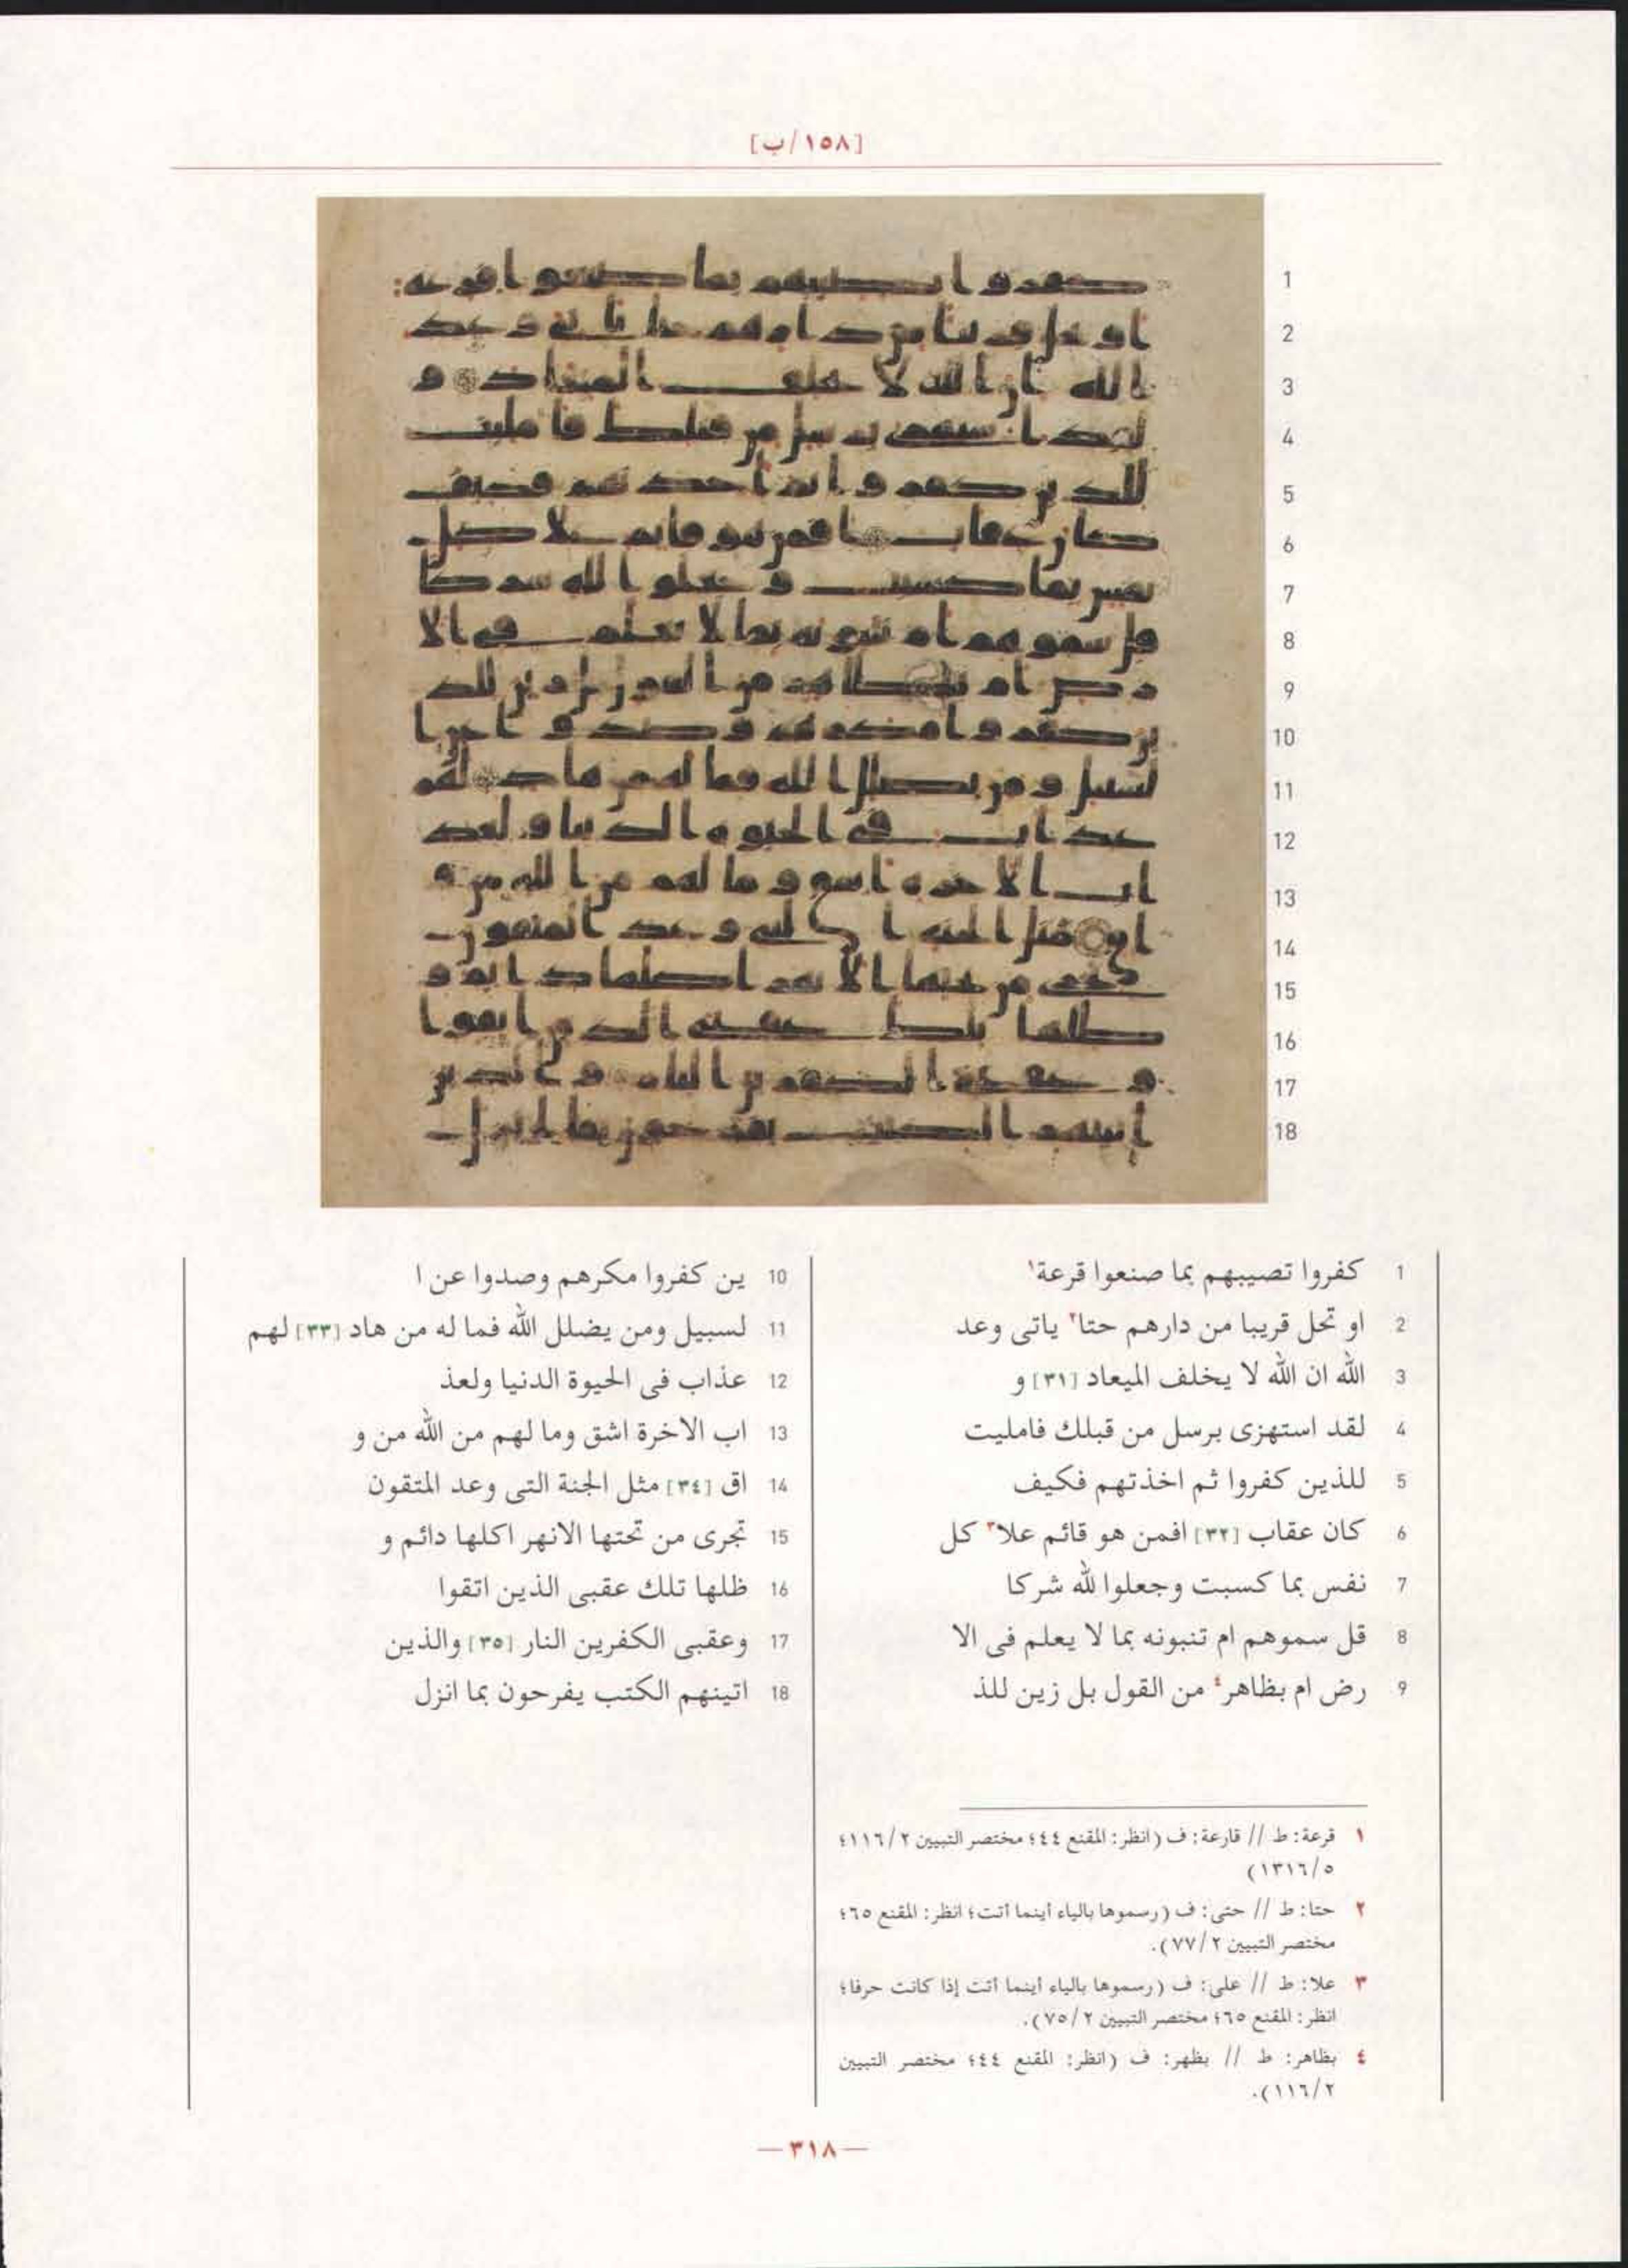 [١٥٨/ب]
1 كفروا تصيبهم بما صنعوا قرعة١
2 او تحل قريبا من دارهم حتا٢ ياتى وعد
3 الله ان الله لا يخلف الميعاد [٣١] و
4 لقد استهزى برسل من قبلك فامليت
5 للذين كفروا ثم اخذتهم فكيف
6 كان عقاب [٣٢] افمن هو قائم علا٣ كل
7 نفس بما كسبت وجعلوا لله شركا
8 قل سموهم ام تنبونه بما لا يعلم فى الا
9 رض ام بظاهر٤ من القول بل زين للذ
10 ين كفروا مكرهم وصدوا عن ا
11 لسبيل ومن يضلل الله فما له من هاد [٣٣] لهم
12 عذاب فى الحيوة الدنيا ولعذ
13 اب الاخرة اشق وما لهم من الله من و
14 اق [٣٤] مثل الجنة التى وعد المتقون
15 تجرى من تحتها الانهر اكلها دائم و
16 ظلها تلك عقبى الذين اتقوا
17 وعقبى الكفرين النار [٣٥] والذين
18 اتينهم الكتب يفرحون بما انزل
١ قرعة: ط // قارعة: ف (انظر: المقنع ٤٤؛ مختصر التبيين ١١٦/٢؛
١٣١٦/٥)
٢ حتا: ط // حتى: ف (رسموها بالياء أينما أتت؛ انظر: المقنع ٦٥؛
مختصر التبيين ٧٧/٢).
٣ علا: ط // على: ف (رسموها بالياء أينما أتت إذا كانت حرفا؛
انظر: المقنع ٦٥؛ مختصر التبيين ٧٥/٢).
٤ بظاهر: ط // بظهر: ف (انظر: المقنع ٤٤؛ مختصر التبيين
١١٦/٢).
—٣١٨—